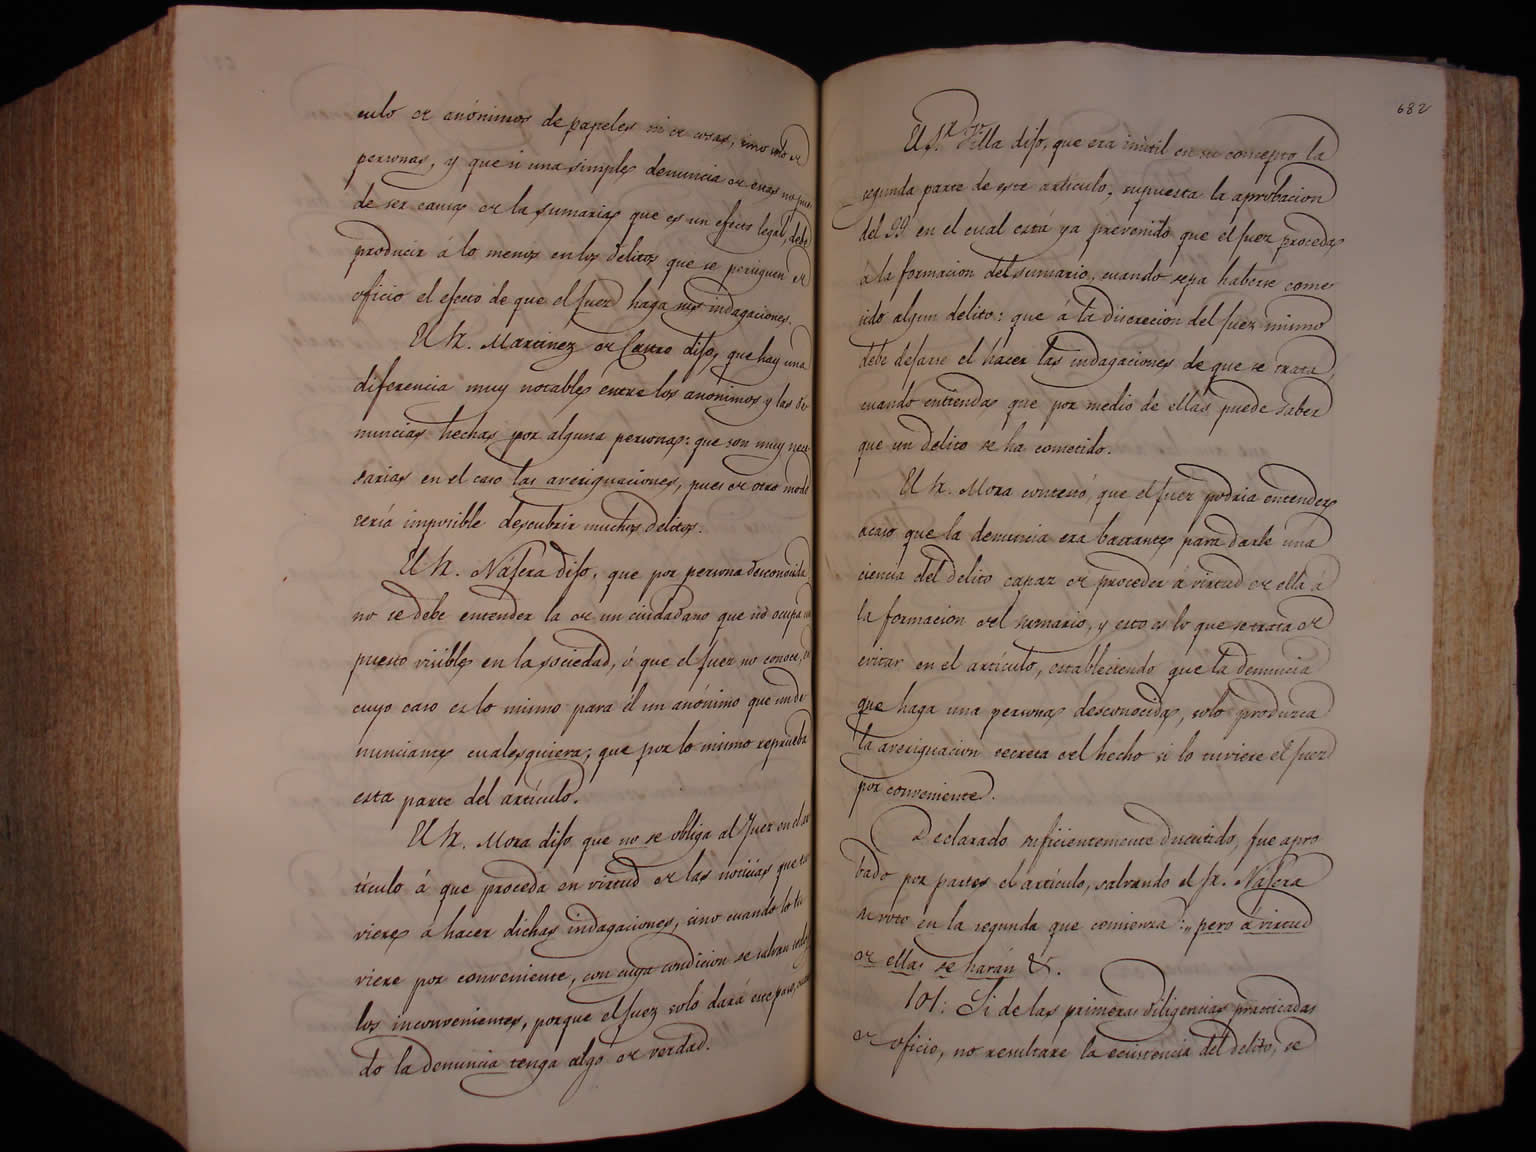 culo de anónimos de papeles ni de cosas, sino solo de
personas, y que si una simple denuncia de estas no pue
de ser causa de la sumaria que es un efecto legal, debe
producir á lo menos en los delitos que se persiguen de
oficio el efecto de que el juez haga sus indagaciones.
El Sr. Martinez de Castro dijo, que hay una
diferencia muy notable entre los anónimos y las de
nuncias hechas por alguna persona: que son muy nece
sarias en el caso las averiguaciones, pues de otro modo
sería imposible descubrir muchos delitos.
El Sr. Najera dijo, que por persona desconocida
no se debe entender la de un ciudadano que no ocupa un
puesto visible en la sociedad, ó que el juez no conoce, en
cuyo caso es lo mismo para él un anónimo que un de
nunciante cualesquiera; que por lo mismo reprueba
esta parte del artículo.
El Sr. Mora dijo que no se obliga al Juez en el ar
tículo á que proceda en virtud de las noticias que tu
viere á hacer dichas indagaciones, sino cuando lo tu
viere por conveniente, con cuya condicion se salvan todos
los inconvenientes, porque el juez solo dará este paso, cuan
do la denuncia tenga algo de verdad.
682
El Sr. Villa dijo, que era inútil en su concepto la
segunda parte de este artículo, supuesta la aprobacion
del 99 en el cual está ya prevenido que el juez proceda
á la formacion del sumario, cuando sepa haberse come
tido algun delito: que á la discrecion del juez mismo
debe dejarse el hacer las indagaciones de que se trata,
cuando entienda que por medio de ellas puede saber
que un delito se ha cometido.
El Sr. Mora contestó, que el juez podria entender
acaso que la denuncia era bastante para darle una
ciencia del delito capaz de proceder á virtud de ella á
la formacion del sumario, y esto es lo que se trata de
evitar en el artículo, estableciendo que la denuncia
que haga una persona desconocida, solo produzca
la averiguacion secreta del hecho si lo tuviere el juez
por conveniente.
Declarado suficientemente discutido, fue apro
bado por partes el artículo, salvando el Sr. Najera
su voto en la segunda que comienza: „ pero á virtud
de ellas se harán &.
101: Si de las primeras diligencias practicadas
de oficio, no resultare la ecsistencia del delito, se